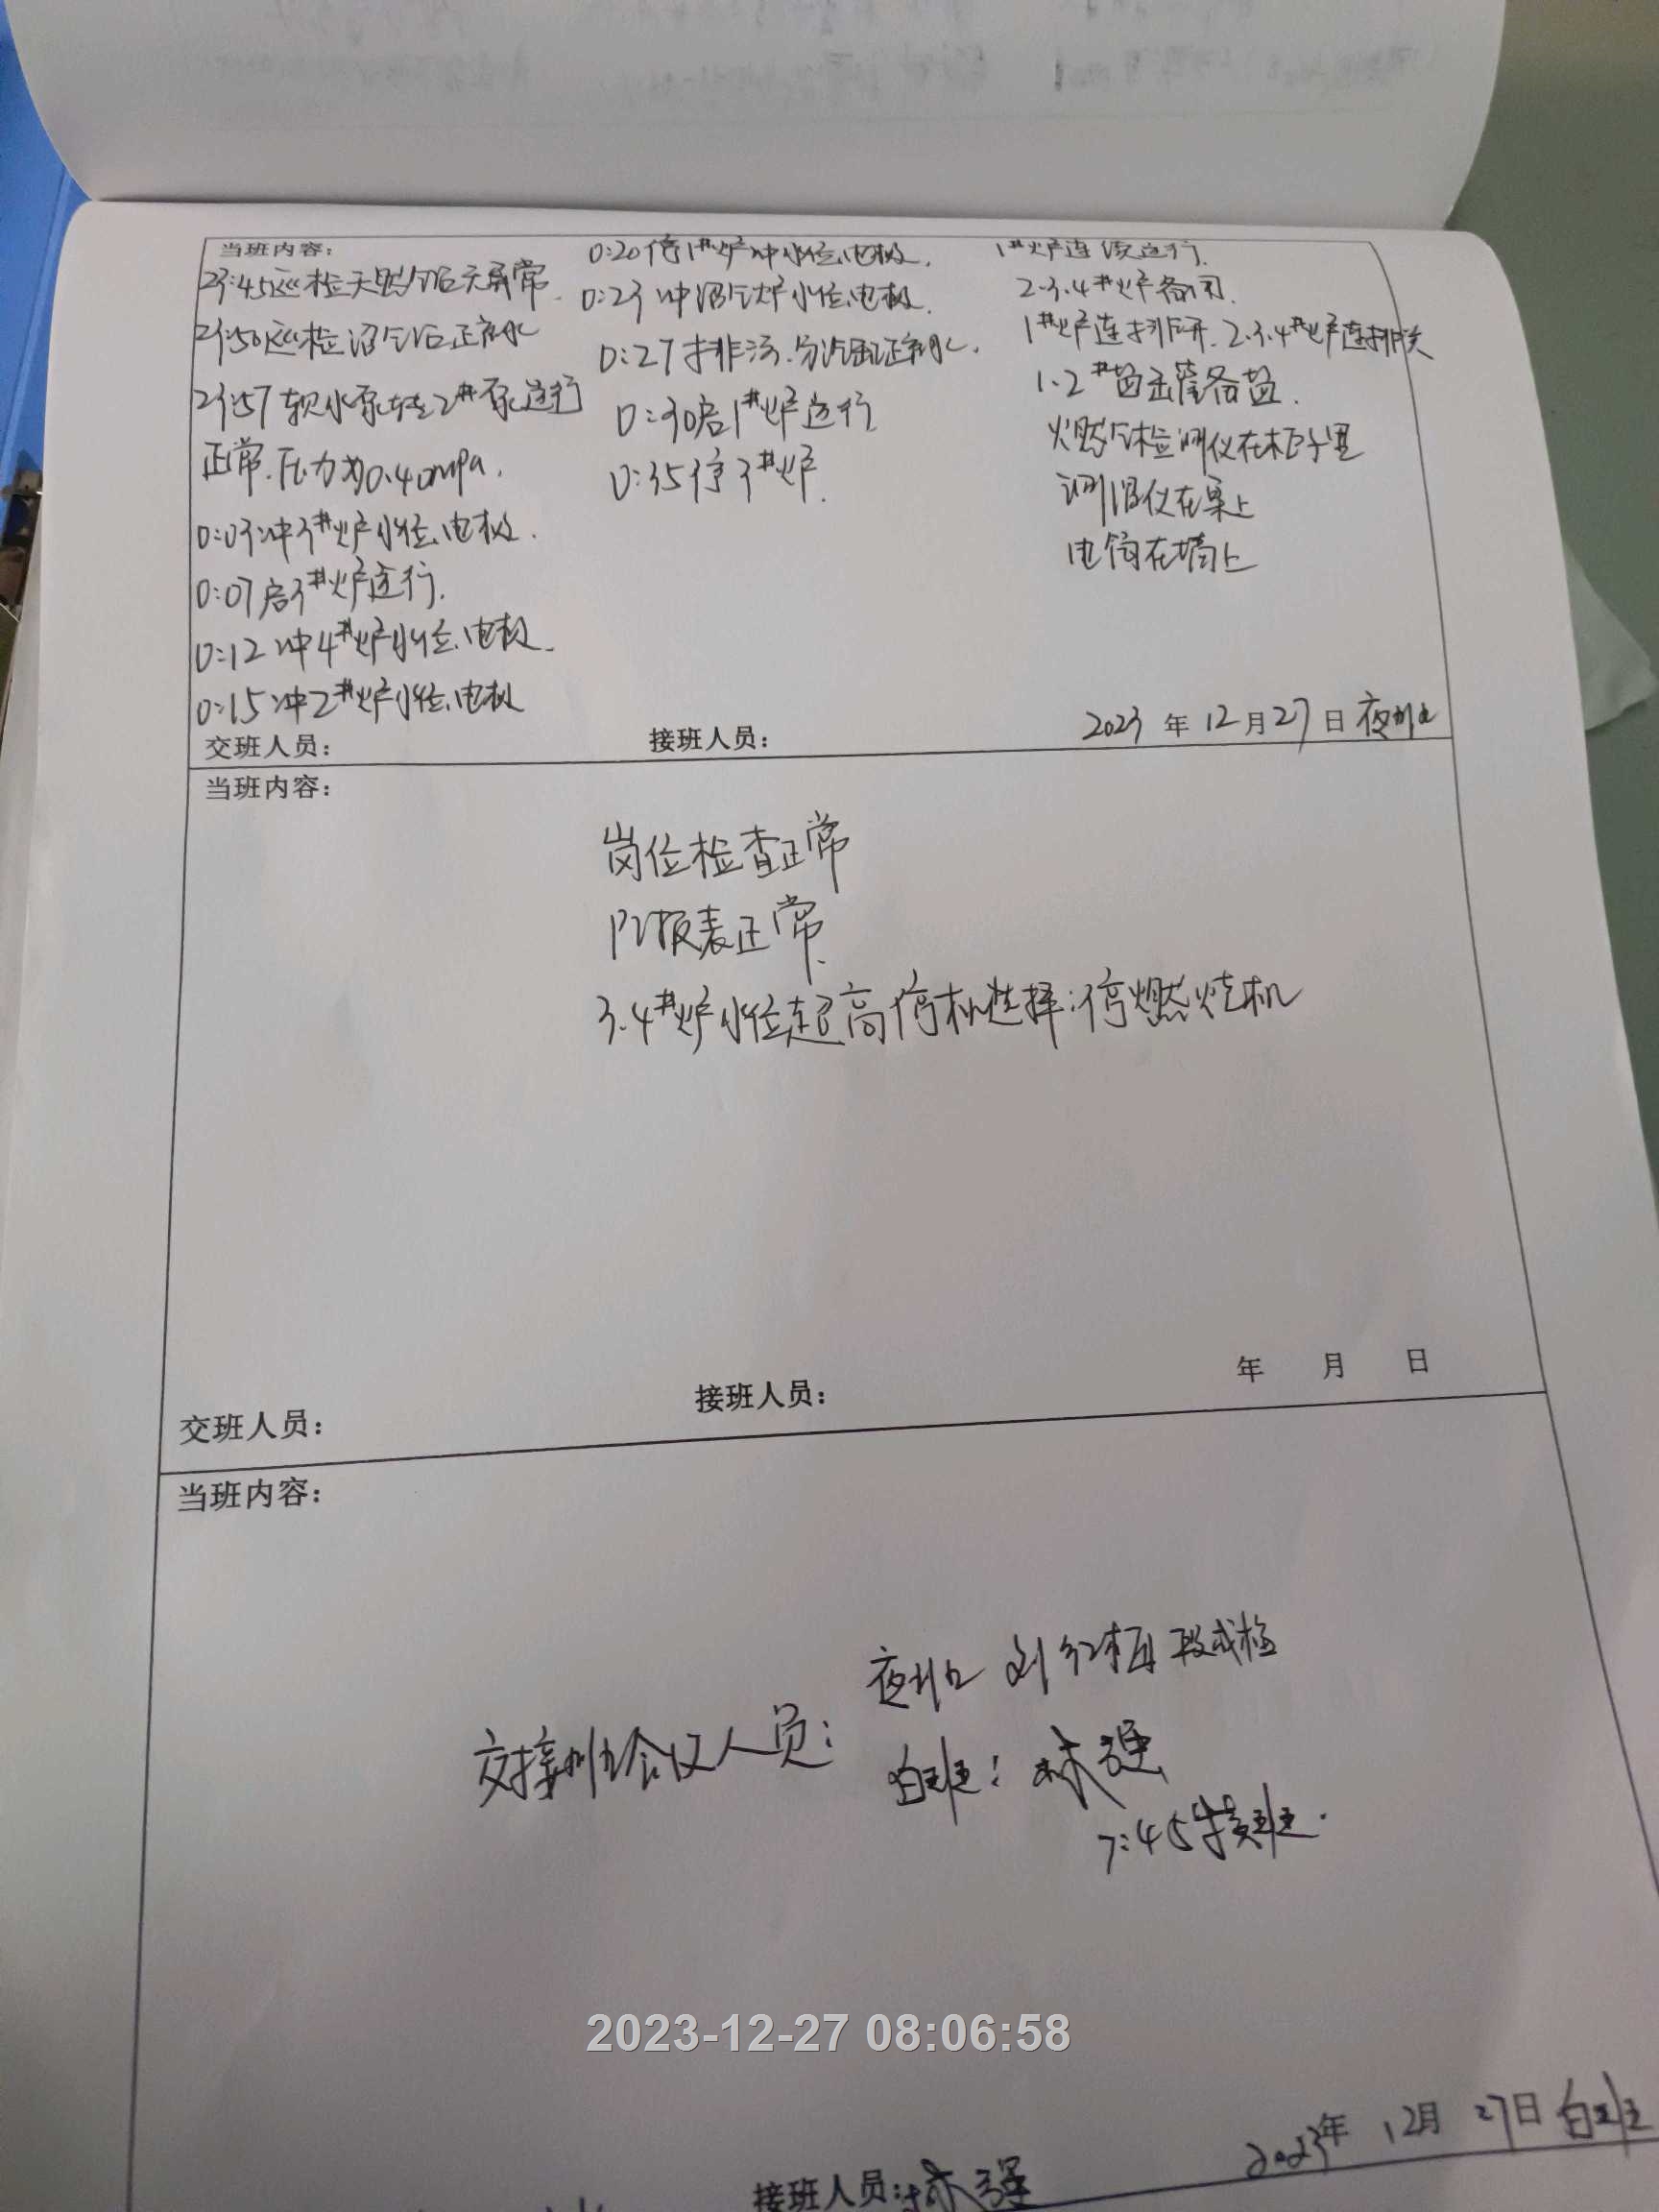 当班内容：
23:45巡检天燃气后无异常.
23:50巡检沼气后正常
23:57软水泵转至2#泵运行
正常.压力为0.40mpa.
0:03冲3#炉水位.电极.
0:07启3#炉运行.
0:12冲4#炉水位.电极.
0:15冲2#炉水位.电极
0:20停1#炉冲水位.电极.
0:23冲沼气炉水位.电极.
0:27排污.分汽缸正常.
0:30启1#炉运行
0:35停3#炉.
1#炉连续运行.
2.3.4#炉备用.
1#炉连排开.2.3.4#炉连排关
1.2#盐罐备盐.
燃气检测仪在柜子里
测温仪在桌上
电筒在墙上
交班人员： 接班人员： 2023 年 12 月 27 日 夜班
当班内容：
岗位检查正常
报表正常.
3.4#炉水位超高停机选择:停燃烧机
交班人员： 接班人员： 年 月 日
当班内容：
夜班 刘红梅 段成检
交接班会议人员:
白班: 林强
7:45接班.
2023-12-27 08:06:58
2023年 12月 27日 白班
接班人员:林强